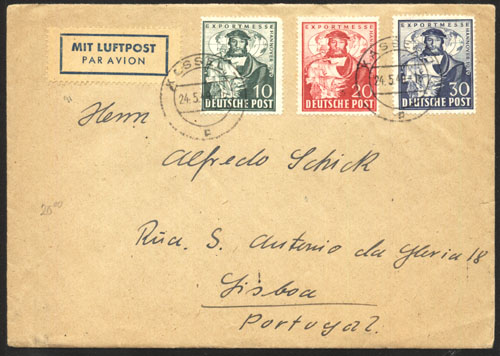 MIT LUFTPOST
PAR AVION
EXPORTMESSE HANNOVER
10
DEUTSCHE POST
EXPORTMESSE HANNOVER
20
DEUTSCHE POST
EXPORTMESSE HANNOVER
30
DEUTSCHE POST
KASSEL
24.5.
24.5.4
Herrn
Alfredo Schick
Rúa. S. Antonio da Gloria 18
Lisboa
Portugal.